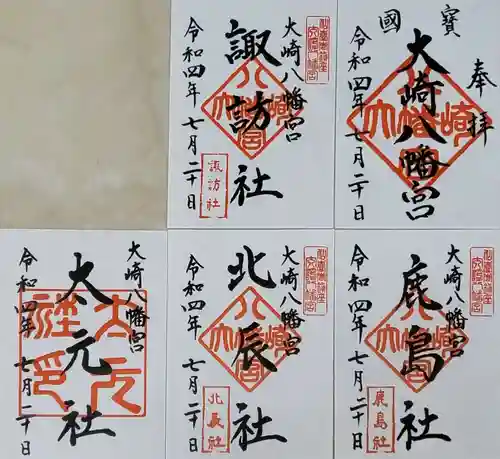 奉拝
寳
國
大崎八幡宮
令和四年七月二十日
大崎八幡宮
諏訪社
令和四年七月二十日
諏訪社
大崎八幡宮
鹿島社
令和四年七月二十日
鹿島社
大崎八幡宮
北辰社
令和四年七月二十日
北辰社
大崎八幡宮
太元社
令和四年七月二十日